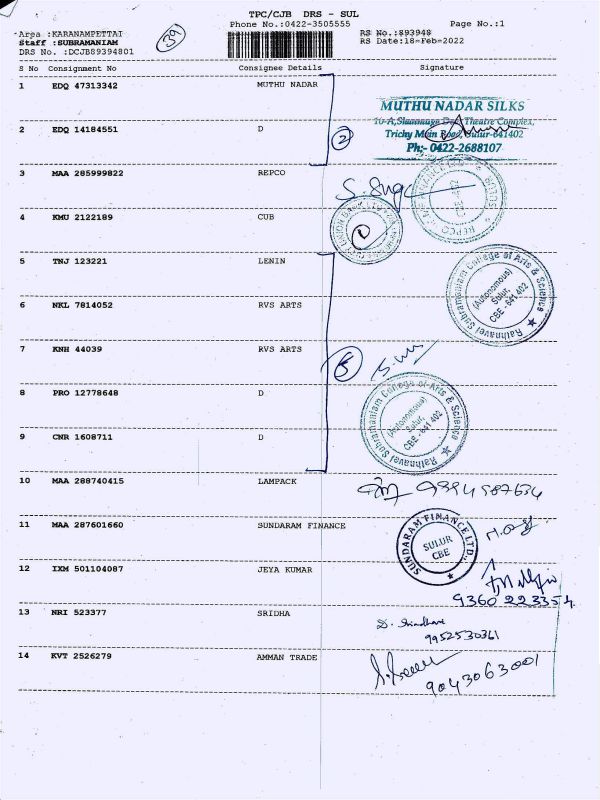 TPC/CJB DRS - SUL
Phone No.:0422-3505555
Page No.:1
Area :KARANAMPETTAI
Staff :SUBRAMANIAM
DRS No. :DCJB89394801
39
RS No.:893948
RS Date:18-Feb-2022
S No Consignment No Consignee Details Signature
1 EDQ 47313342 MUTHU NADAR
MUTHU NADAR SILKS
Theatre Complex,
Trichy Main Road, Sulur-641402
Ph;- 0422-2688107
2 EDQ 14184551 D
2
3 MAA 285999822 REPCO
REPCO
CBE-402
4 KMU 2122189 CUB
5 TNJ 123221 LENIN
Rathnavel Subramaniam College of Arts & Science
(Autonomous)
Sulur,
CBE - 641 402
6 NKL 7814052 RVS ARTS
7 KNH 44039 RVS ARTS
5
8 PRO 12778648 D
Rathnavel Subramaniam College of Arts & Science
(Autonomous)
Sulur,
CBE - 641 402
9 CNR 1608711 D
10 MAA 288740415 LAMPACK
9994987634
11 MAA 287601660 SUNDARAM FINANCE
SUNDARAM FINANCE LTD.,
SULUR
CBE
12 IXM 501104087 JEYA KUMAR
9360 223354
13 NRI 523377 SRIDHA
9952530361
14 KVT 2526279 AMMAN TRADE
9043063001